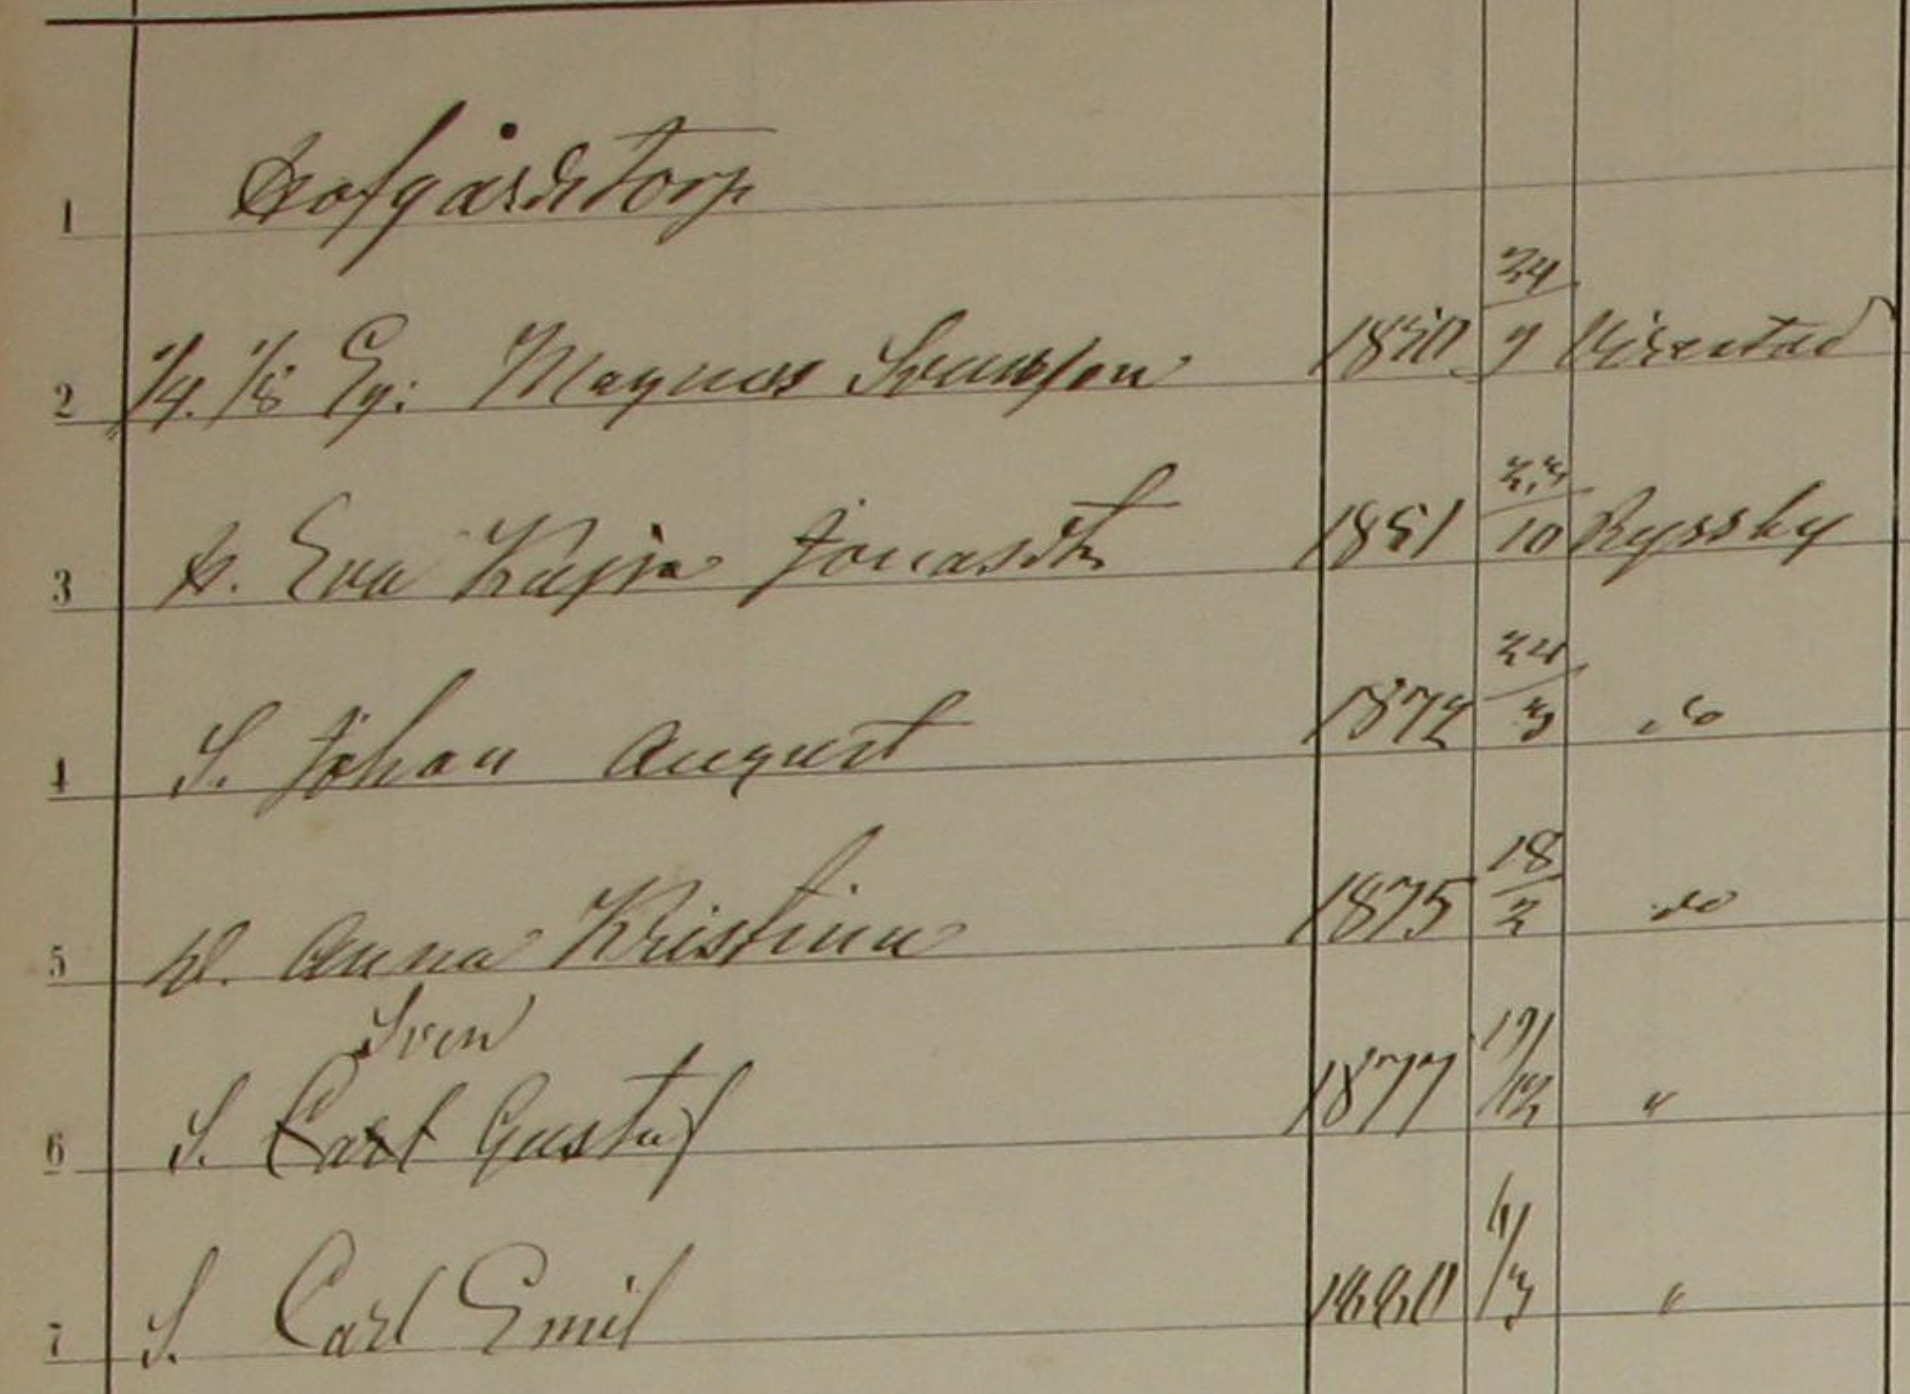 1 Hofgårdstorp
2 1/4. 1/8 Eg. Magnus Svensson 1840 24/9 Virestad
3 H. Eva Kajsa Jonasdtr 1851 /10 Ryssby
4 S. Johan August 1872 24/3 do
5 D. Anna Kristina 1875 18/2 do
Sven
6 S. Carl Gustaf 1877 /12 "
7 S. Carl Emil 1880 /3 "